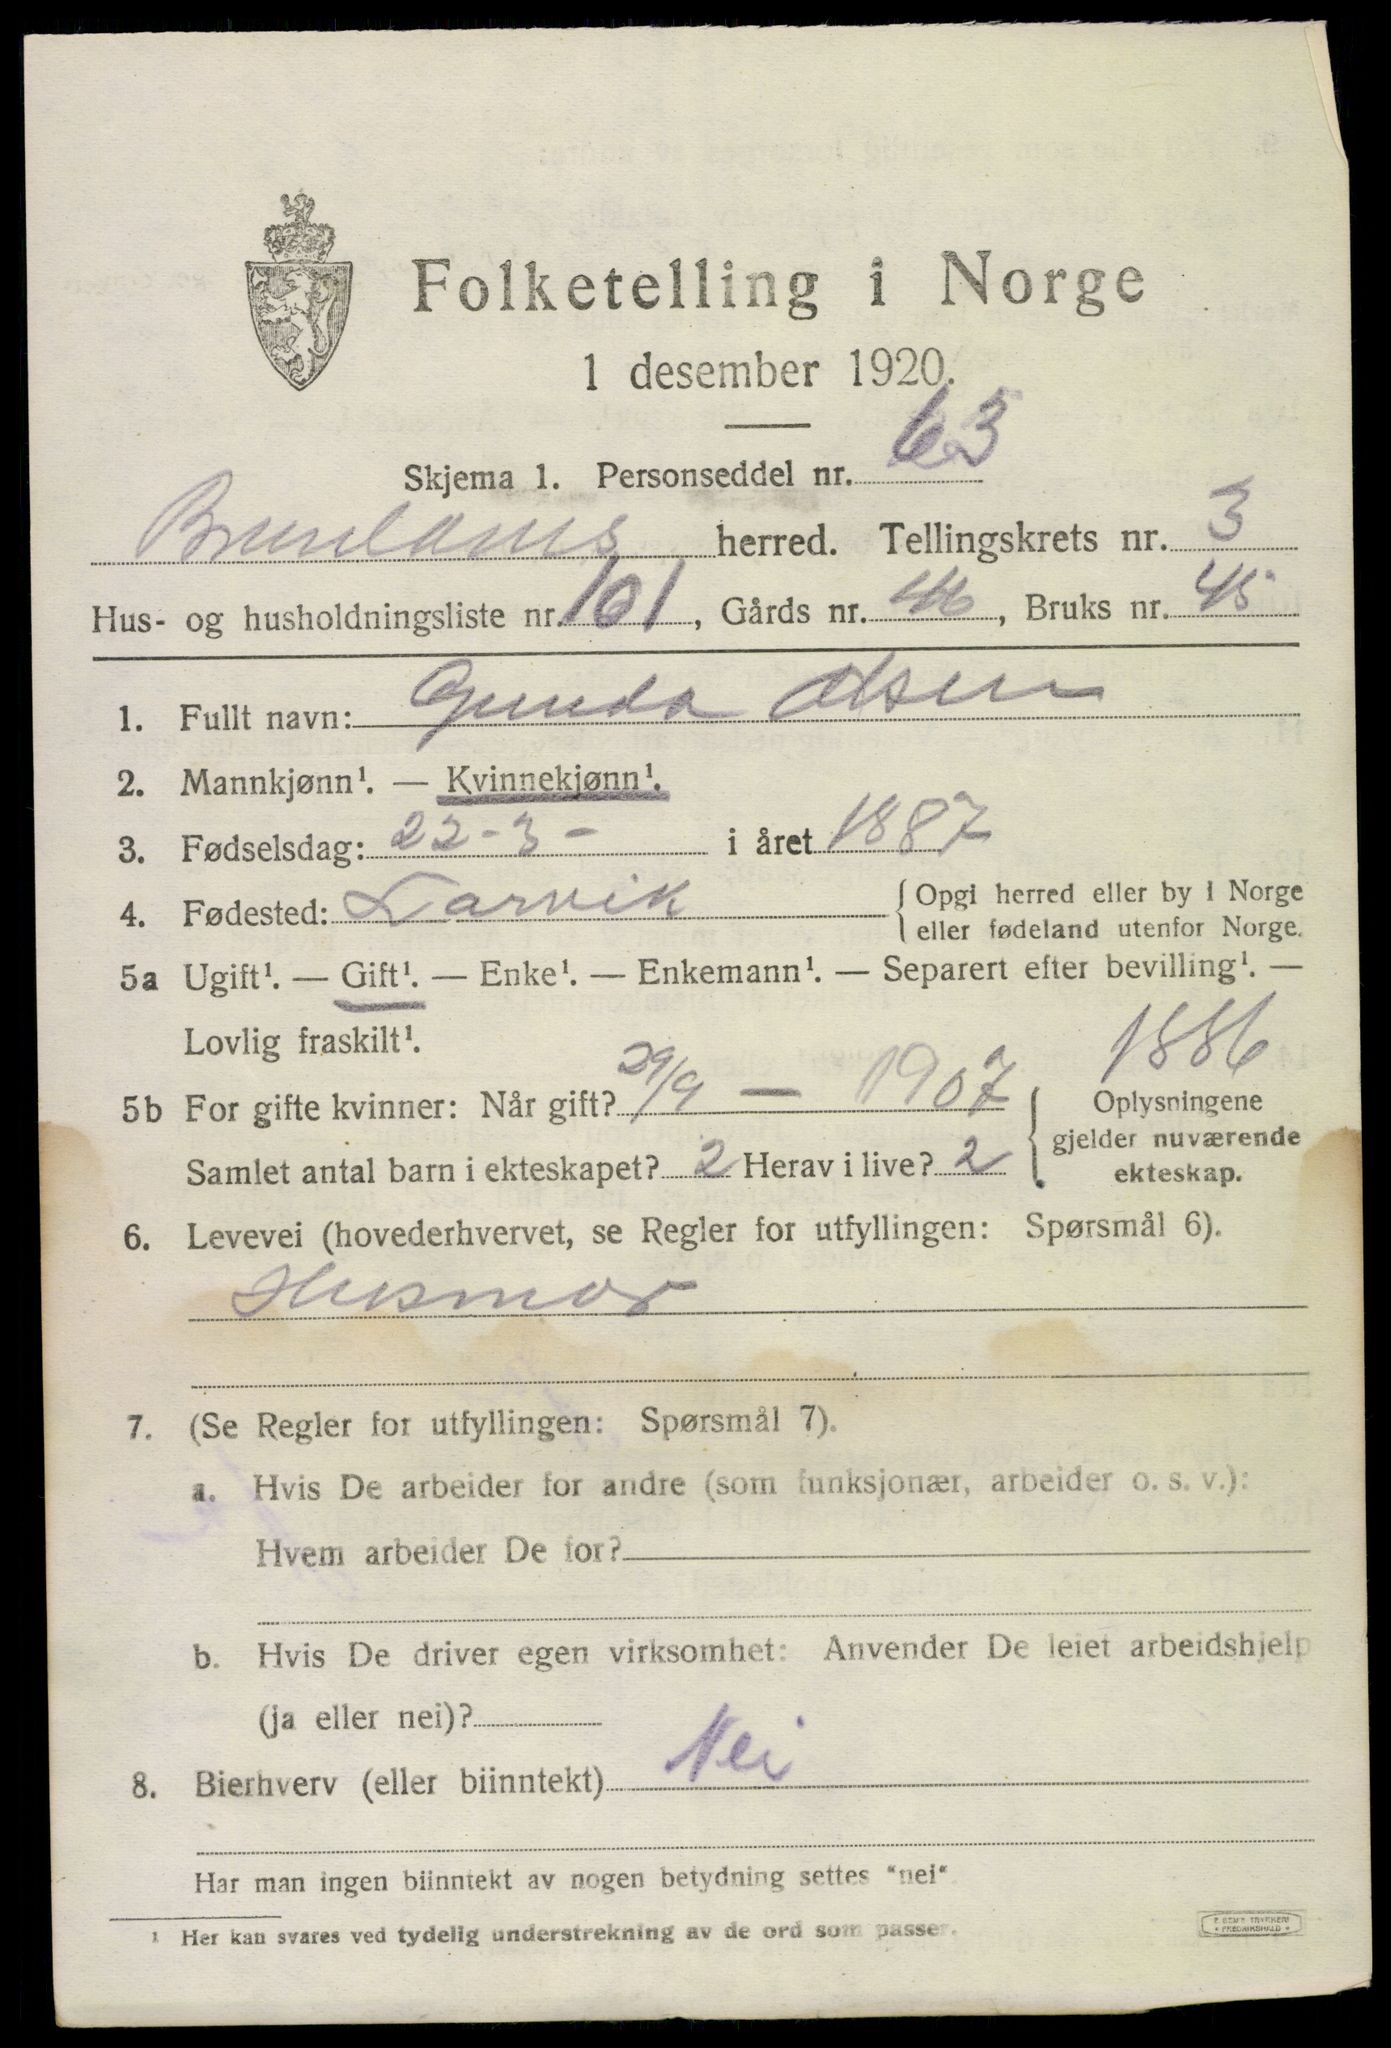 Folketelling i Norge
1 desember 1920.
Skjema 1. Personseddel nr. 63
Brunlanes herred. Tellingskrets nr. 3
Hus- og husholdningsliste nr. 101, Gårds nr. 46, Bruks nr. 45
1. Fullt navn: Gunda Olsen
2. Mannkjønn¹. — Kvinnekjønn¹.
3. Fødselsdag: 22-3- i året 1887
4. Fødested: Larvik { Opgi herred eller by i Norge
eller fødeland utenfor Norge.
5a Ugift¹. — Gift¹. — Enke¹. — Enkemann¹. — Separert efter bevilling¹. —
Lovlig fraskilt¹.
1886
5b For gifte kvinner: Når gift? 29/9 — 1907 { Oplysningene
gjelder nuværende
Samlet antal barn i ekteskapet? 2 Herav i live? 2 ekteskap.
6. Levevei (hovederhvervet, se Regler for utfyllingen: Spørsmål 6).
Husmor
7. (Se Regler for utfyllingen: Spørsmål 7).
a. Hvis De arbeider for andre (som funksjonær, arbeider o. s. v.):
Hvem arbeider De for?
b. Hvis De driver egen virksomhet: Anvender De leiet arbeidshjelp
(ja eller nei)?
8. Bierhverv (eller biinntekt) Nei
Har man ingen biinntekt av nogen betydning settes "nei"
¹ Her kan svares ved tydelig understrekning av de ord som passer.